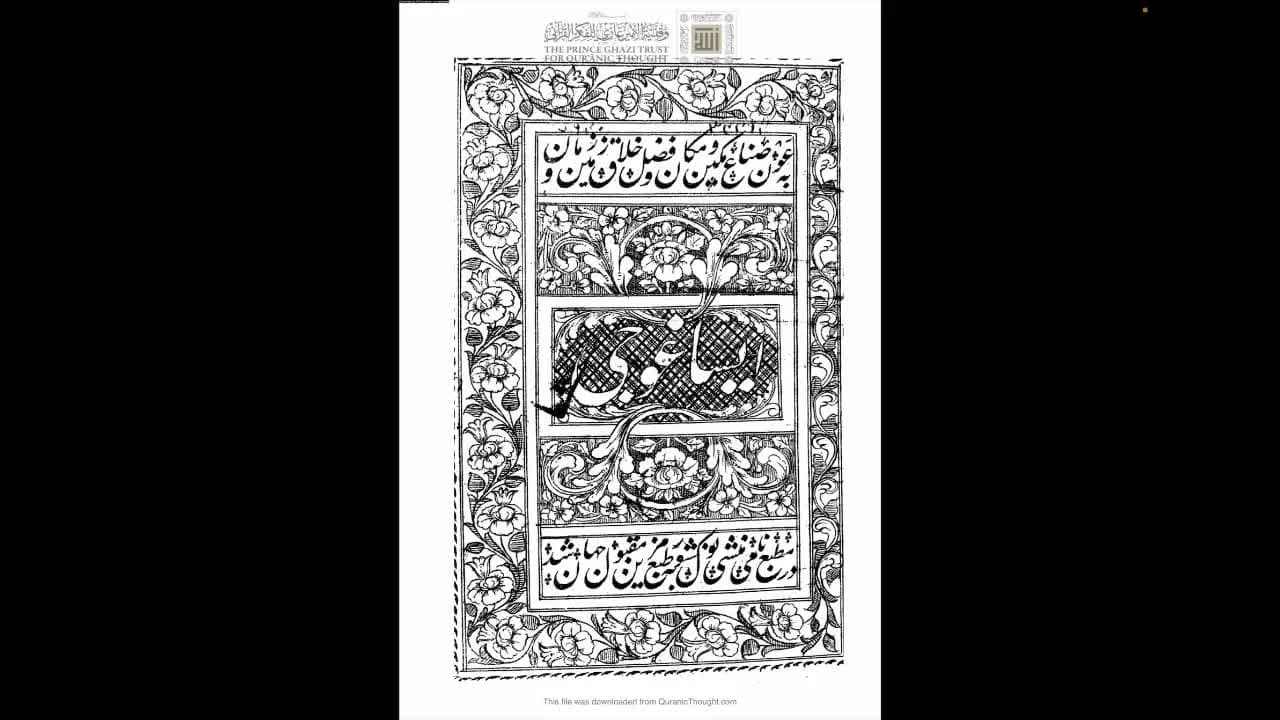 وقفية الأمير غازي للفكر القرآني
THE PRINCE GHAZI TRUST
FOR QUR'ĀNIC THOUGHT
الله
به عون صناع مکین و مکان و فضل خلاق زمین و زمان
ایساغوجی
در مطبع نامی منشی نولکشور بطبع مزین مقبول جهان شد
This file was downloaded from QuranicThought.com